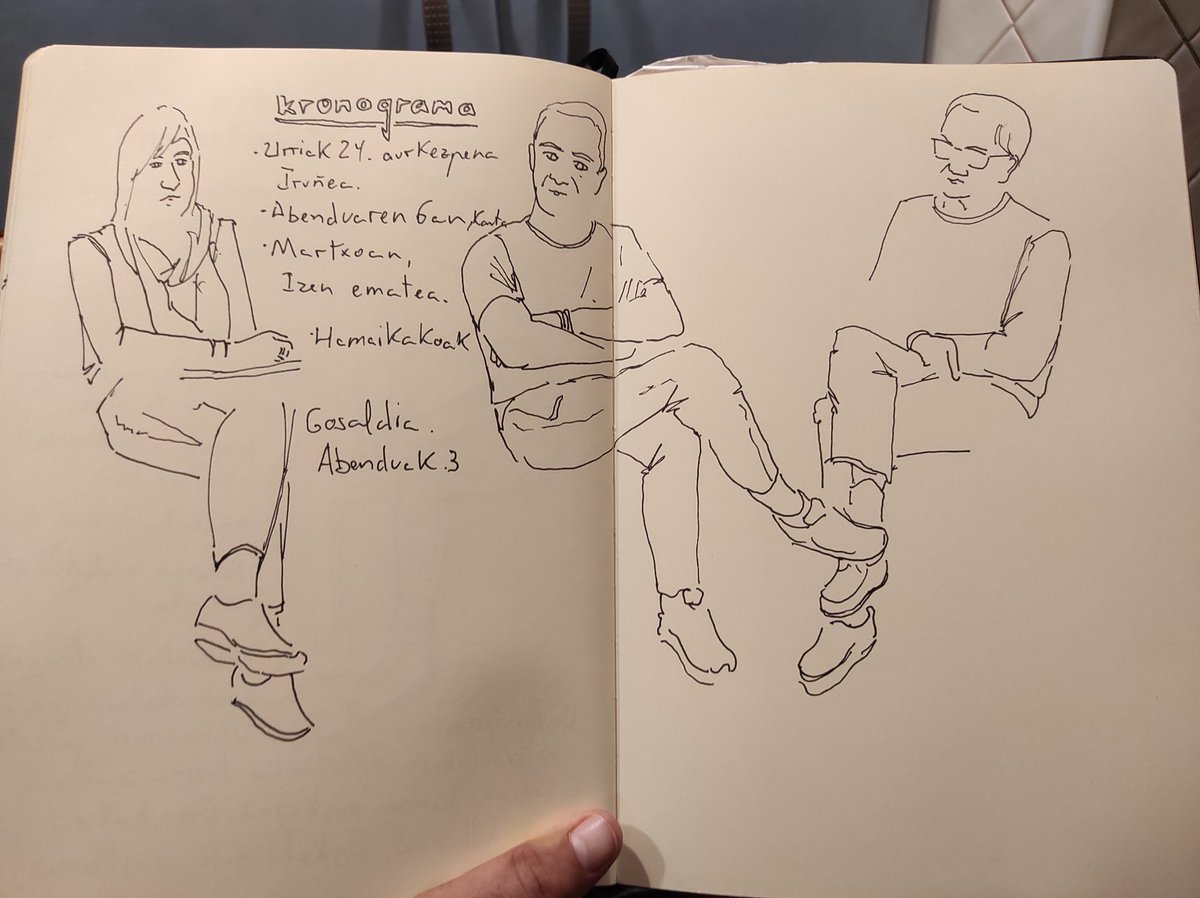 kronograma
· Urriak 24. aurkezpena
Iruñea.
· Abenduaren 6an, karta
· Martxoan,
Izen ematea.
· Hamaikakoak
Gosaldia.
Abenduak.3